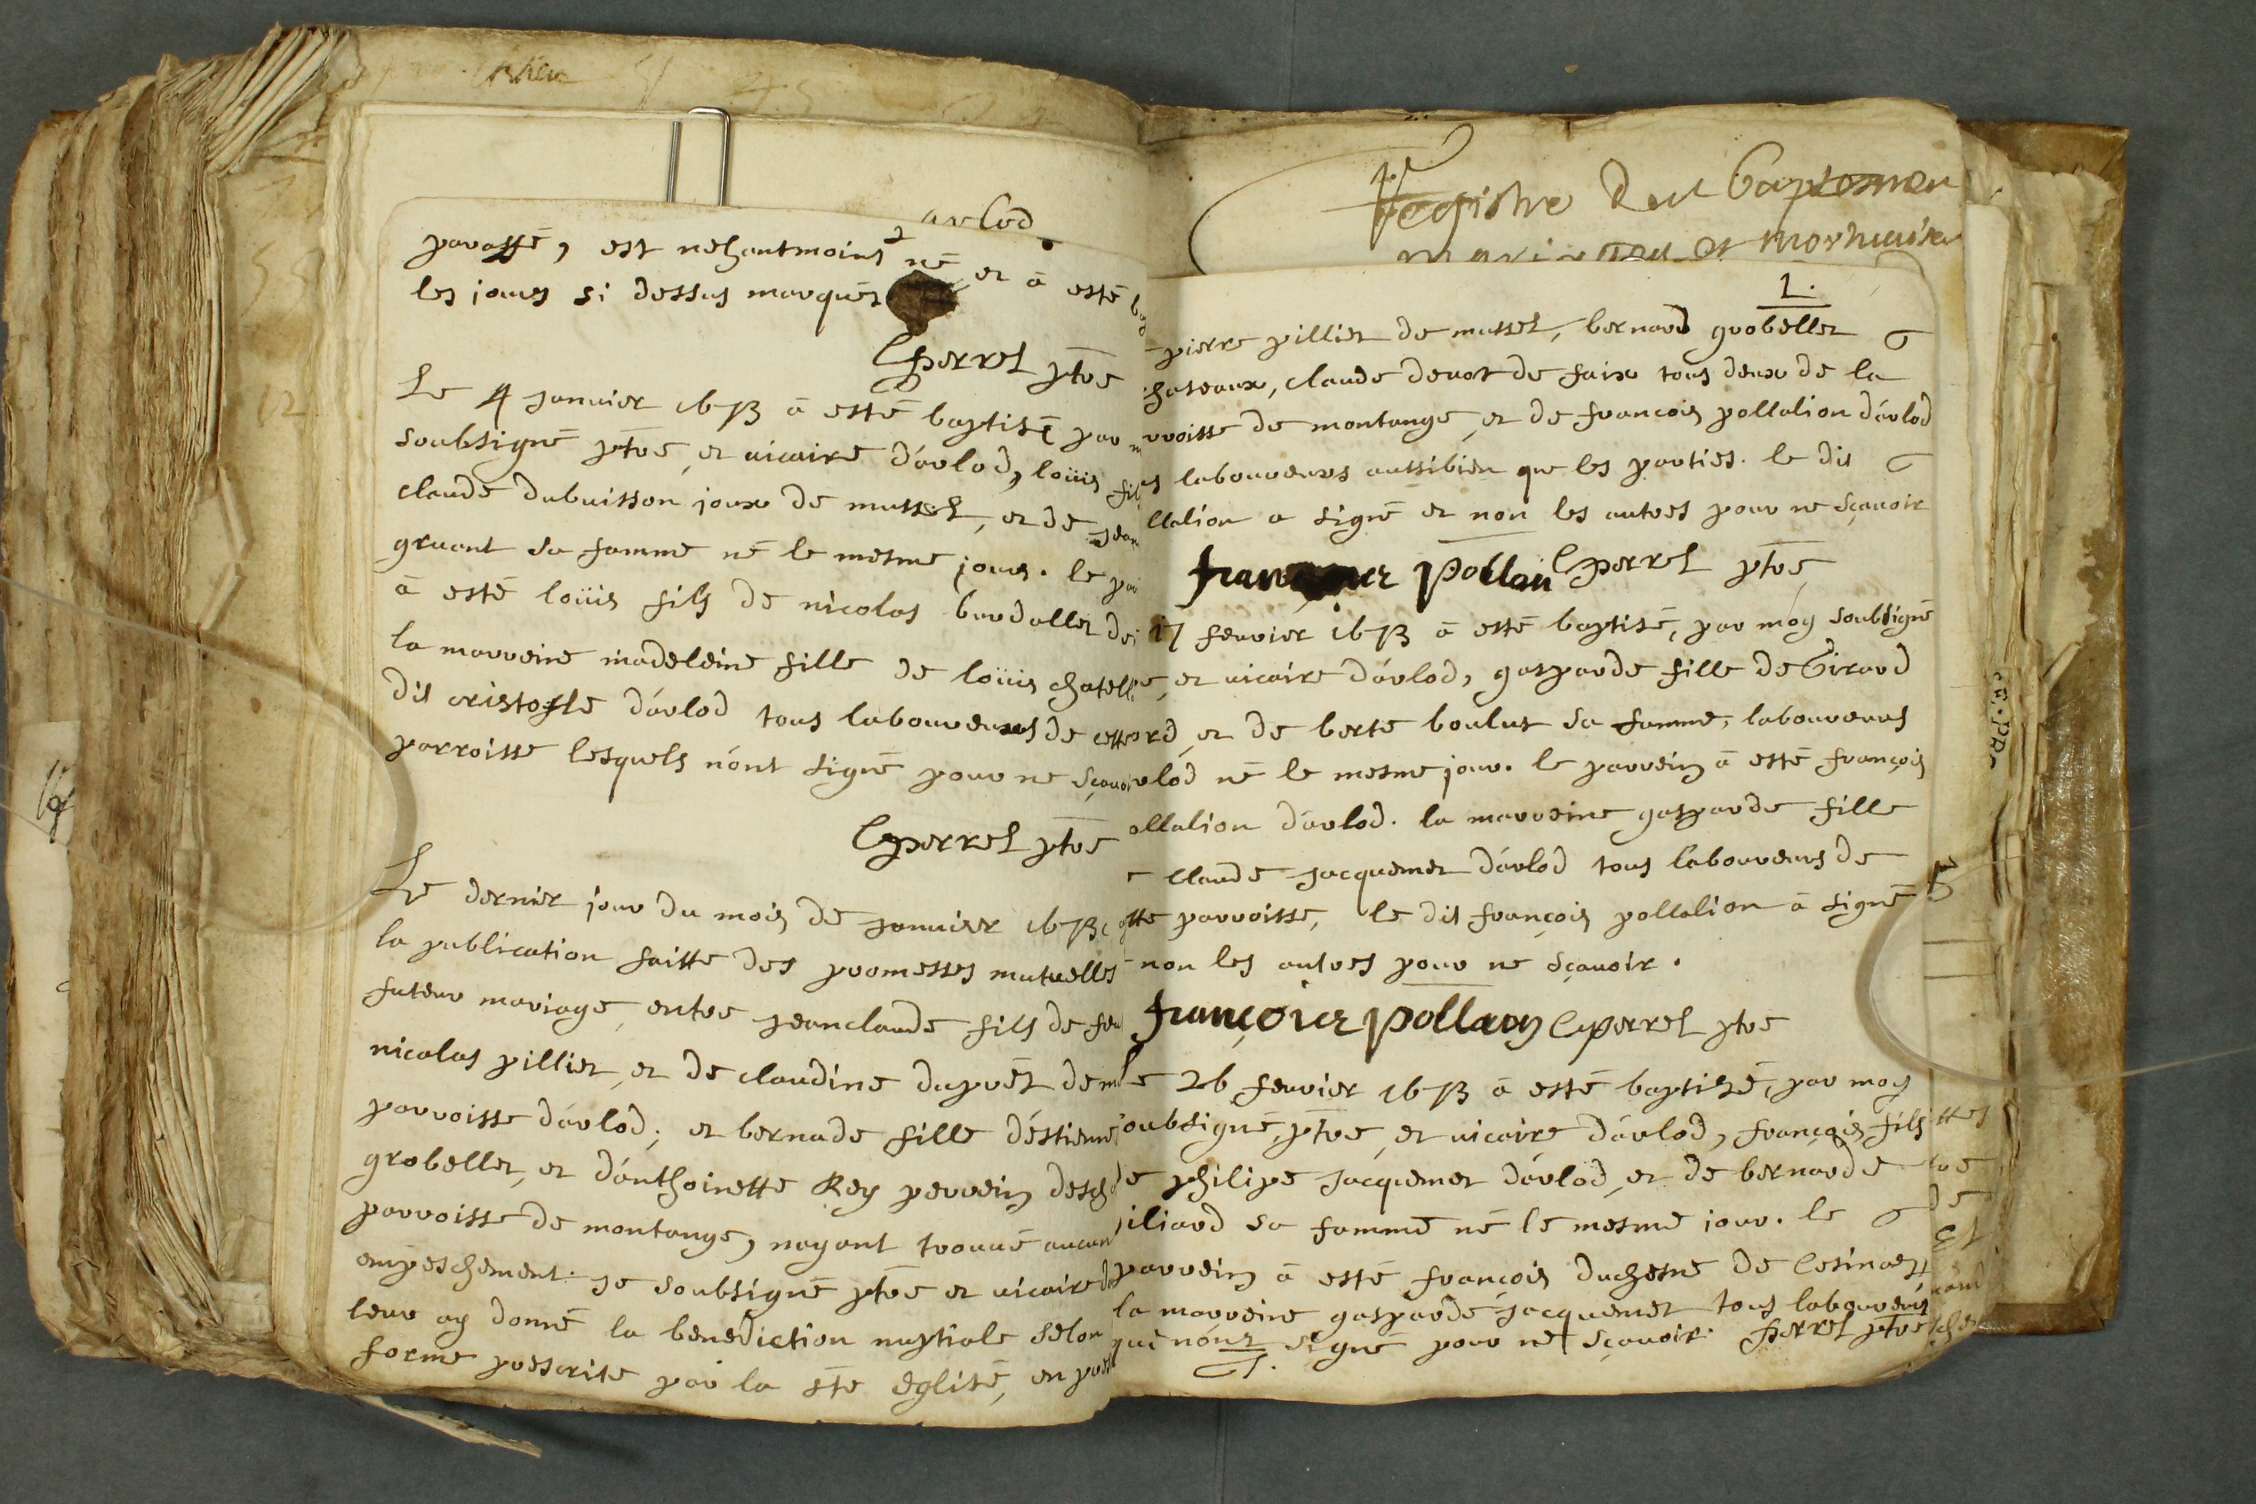 arlod
paraffé, est nehantmoins né et à esté
les jours si dessus marqués
CPerret ptre
Le 4 janvier 1673 à esté baptisé par
soubsigné ptre, et vicaire d'arlod, loüis fils
claude dubuisson joux de mussel, et de
gruent sa famme né le mesme jour. le
à esté loüis fils de nicolas bardallet
la marreine madeleine fille de loüis
dit cristofle d'arlod tous laboureurs de cette
parroisse lesquels n'ont signé pour ne sçavoir
CPerret ptre
Le dernier jour du mois de janvier 1673
la publication faitte des promesses mutuelles
futeur mariage, entre jeanclaude fils de feu
nicolas pillier, et de claudine duprét de
parroisse d'arlod; et bernade fille d'éstienne
grobellet, et d'anthoinette Rey perrein
parroisse de montange, nayant trouvé aucun
empeschement. je soubsigné ptre et vicaire
leur ay donné la benediction nuptiale selon
forme prescrite par la ste église, en
Registre des baptesmes
mariages et mortuaires
1.
pierre pillier de mussel, bernard grobellet
chateaux, claude devot de faix tous deux de la
rroisse de montange, et de francois pollalion d'arlod
laboureurs aussibien que les parties. le dit
llalion a signé et non les autres pour ne sçavoir
CPerret ptre
17 fevrier 1673 à esté baptisé, par moy soubsigné
et vicaire d'arlod, gasparde fille de Girard
et de berte boulut sa famme, laboureurs
rlod né le mesme jour. le parrein à esté françois
ollalion d'arlod. la marreine gasparde fille
claude jacquemet d'arlod tous laboureurs de
tte parroisse, le dit françois pollalion à signé
non les autres pour ne sçavoir.
françois pollaon CPerret ptre
Le 26 fevrier 1673 à esté baptisé, par moy
oubsigné, ptre, et vicaire d'arlod, françois fils
de philipe jacquemet d'arlod, et de bernarde
jiliard sa famme né le mesme jour. le
parrein à esté françois duchesne de
la marreine gasparde jacquemet tous laboureurs
qui nont signé pour ne sçavoir. Perret ptre